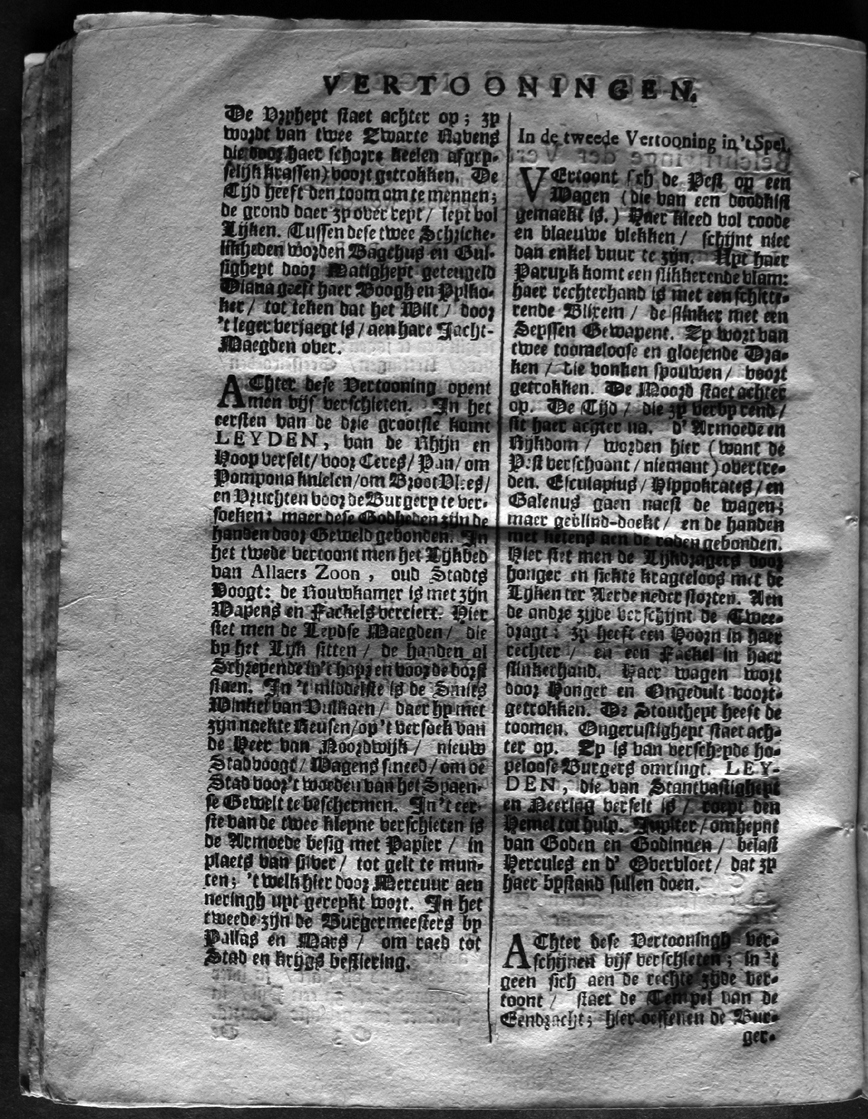 VERTOONINGEN.
De Vryheyt staet achter op; zy
wordt van twee Zwarte Ravens
die door haer schorre keelen afgry-
selijk krassen) voort getrokken. De
Tijd heeft den toom om te mennen;
de grond daer zy over rept / leyt vol
Lijken. Tussen dese twee Schricke-
likheden worden Bagchus en Gul-
sigheyt door Matigheyt geteugeld
Diana geeft haer Boogh en Pylko-
ker / tot teken dat het Wilt / door
't leger verjaegt is / aen hare Jacht-
Maegden over.
AChter dese Vertooning opent
men vijf verschieten. In het
eersten van de drie grootste komt
LEYDEN, van de Rhijn en
Hoop verselt / voor Ceres / Pan / om
Pompona knielen / om Broot Vlees /
en Vruchten voor de Burgery te ver-
soeken; maer dese Godheden zijn de
handen door Geweld gebonden. In
het twede vertoont men het Lijkbed
van Allaers Zoon, oud Stadts
Voogt: de Rouwkamer is met zijn
Wapens en Fackels vereiert. Hier
siet men de Leydse Maegden / die
by het Lijk sitten / de handen al
Schrepende in't hayr en voor de borst
slaen. In 't middelste is de Smits
Winkel van Vulkaen / daer hy met
zijn naekte Reusen / op 't versoek van
de Heer van Noordwijk / nieuw
Stadvoogt / Wagens smeed / om de
Stad voor 't woeden van het Spaen-
se Gewelt te beschermen. In 't eer-
ste van de twee kleyne verschieten is
de Armoede besig met Papier / in
plaets van silver / tot gelt te mun-
ten; 't welk hier door Mercuur aen
neringh uyt gereykt wort. In het
tweede zijn de Burgermeesters by
Pallas en Mars / om raed tot
Stad en krijgs bestiering.
In de tweede Vertooning in 't Spel,
VErtoont sich de Pest op een
Wagen (die van een doodkist
gemaekt is.) Haer kleed vol roode
en blaeuwe vlekken / schijnt niet
dan enkel vuur te zijn. Uyt haer
Paruyk komt een flikkerende vlam:
haer rechterhand is met een schitte-
rende Blixem / de slinker met een
Seyssen Gewapent. Zy wort van
twee toomeloose en gloejende Dra-
ken / die vonken spouwen / voort
getrokken. De Moord staet achter
op. De Tijd / die zy verby rend /
sit haer achter na. d' Armoede en
Rijkdom / worden hier (want de
Pest verschoant / niemant) overtre-
den. Esculapius / Hippokrates / en
Galenus gaen naest de wagen;
maer geblind-doekt / en de handen
met ketens aen de raden gebonden.
Hier siet men de Lijkdragers door
honger en siekte kragteloos met de
Lijken ter Aerde neder storten. Aen
de andre zijde verschijnt de Twee-
dragt: zy heeft een Hoorn in haer
rechter / en een Fackel in haer
slinkerhand. Haer wagen wort
door Honger en Ongedult voort-
getrokken. De Stoutheyt heeft de
toomen. Ongerustigheyt staet ach-
ter op. Zy is van verscheyde ho-
peloose Burgers omringt. LEY-
DEN, die van Stantvastigheyt
en Neering verselt is / roept den
Hemel tot hulp. Jupiter / omheynt
van Goden en Godinnen / belast
Hercules en d' Overvloet / dat zy
haer bystand sullen doen.
AChter dese Vertooningh ver-
schijnen vijf verschieten; in 't
geen sich aen de rechte zijde ver-
toont / staet de Tempel van de
Eendracht; hier oeffenen de Bur-
ger-